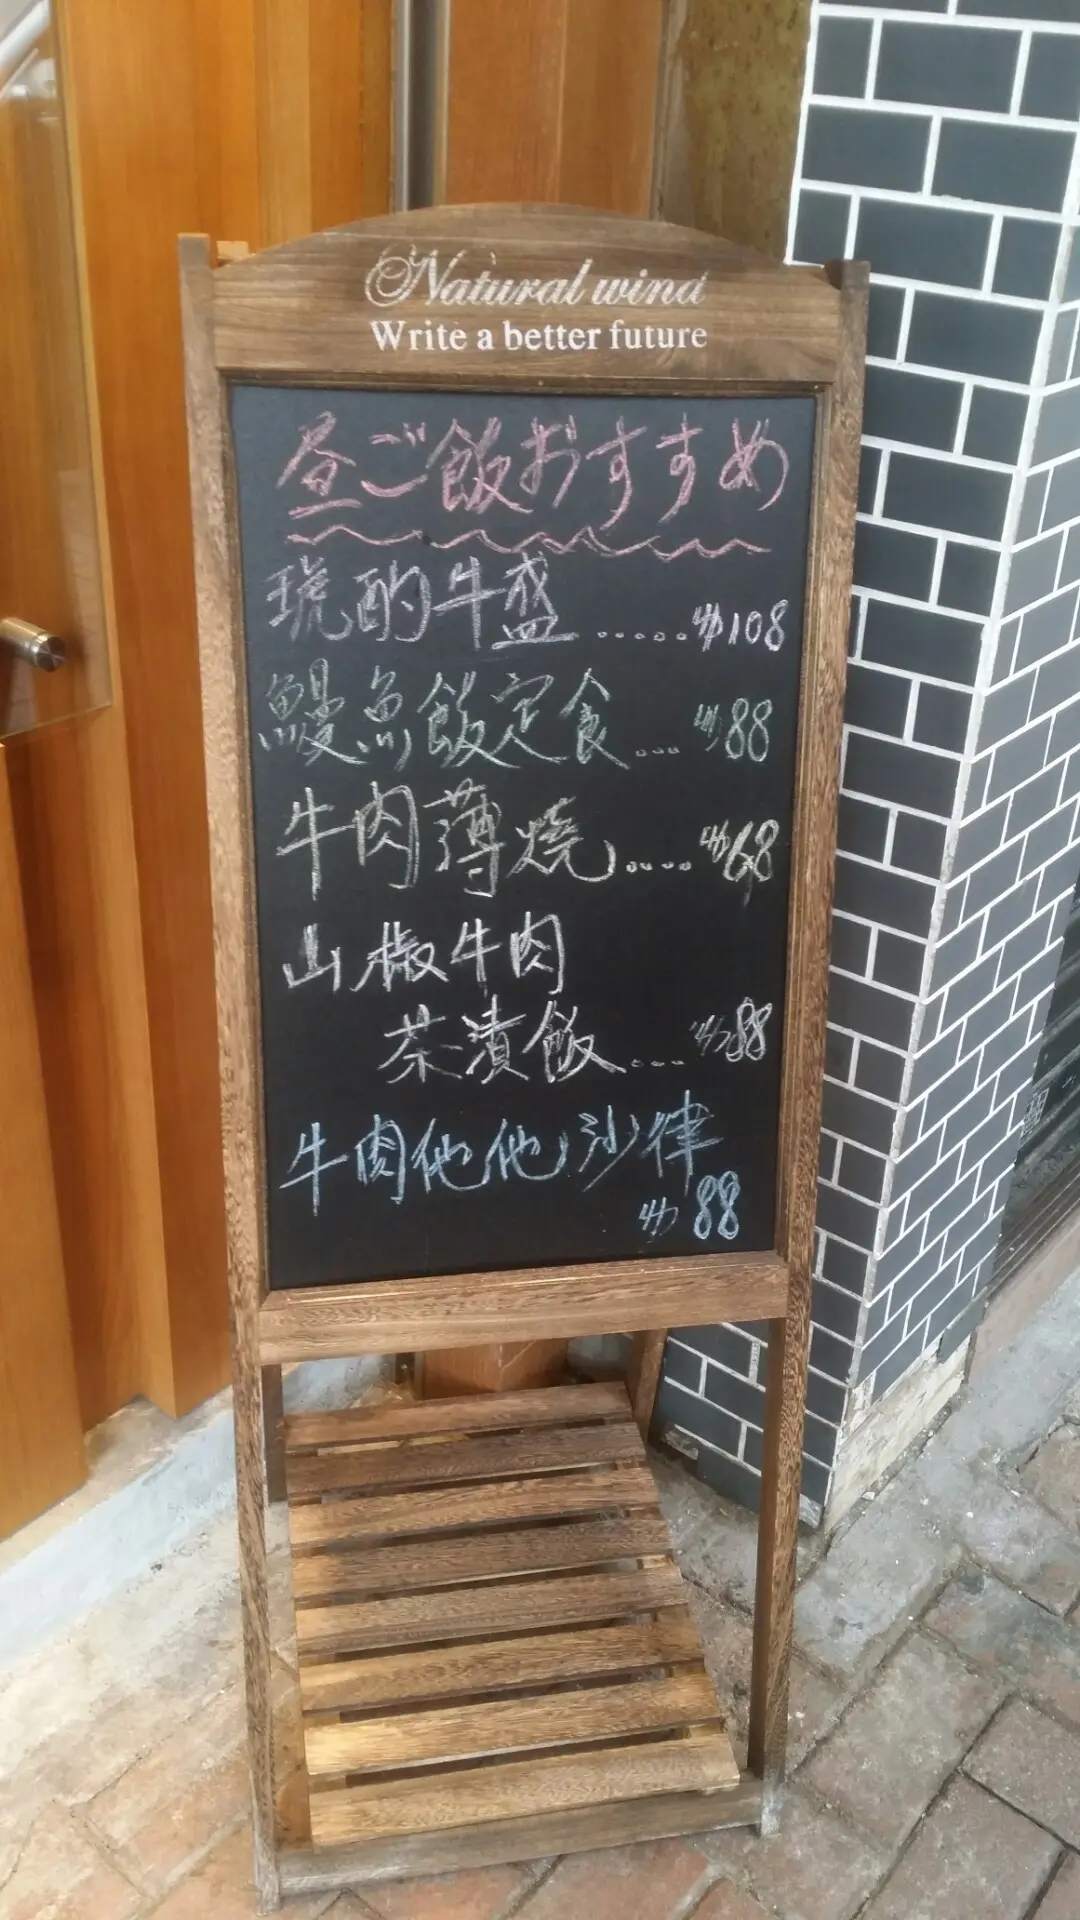 Natural wind
Write a better future
昼ご飯おすすめ
琥酌牛盛.....$108
鰻魚飯定食...$88
牛肉薄燒....$68
山椒牛肉
茶漬飯...$88
牛肉他他沙律
$88